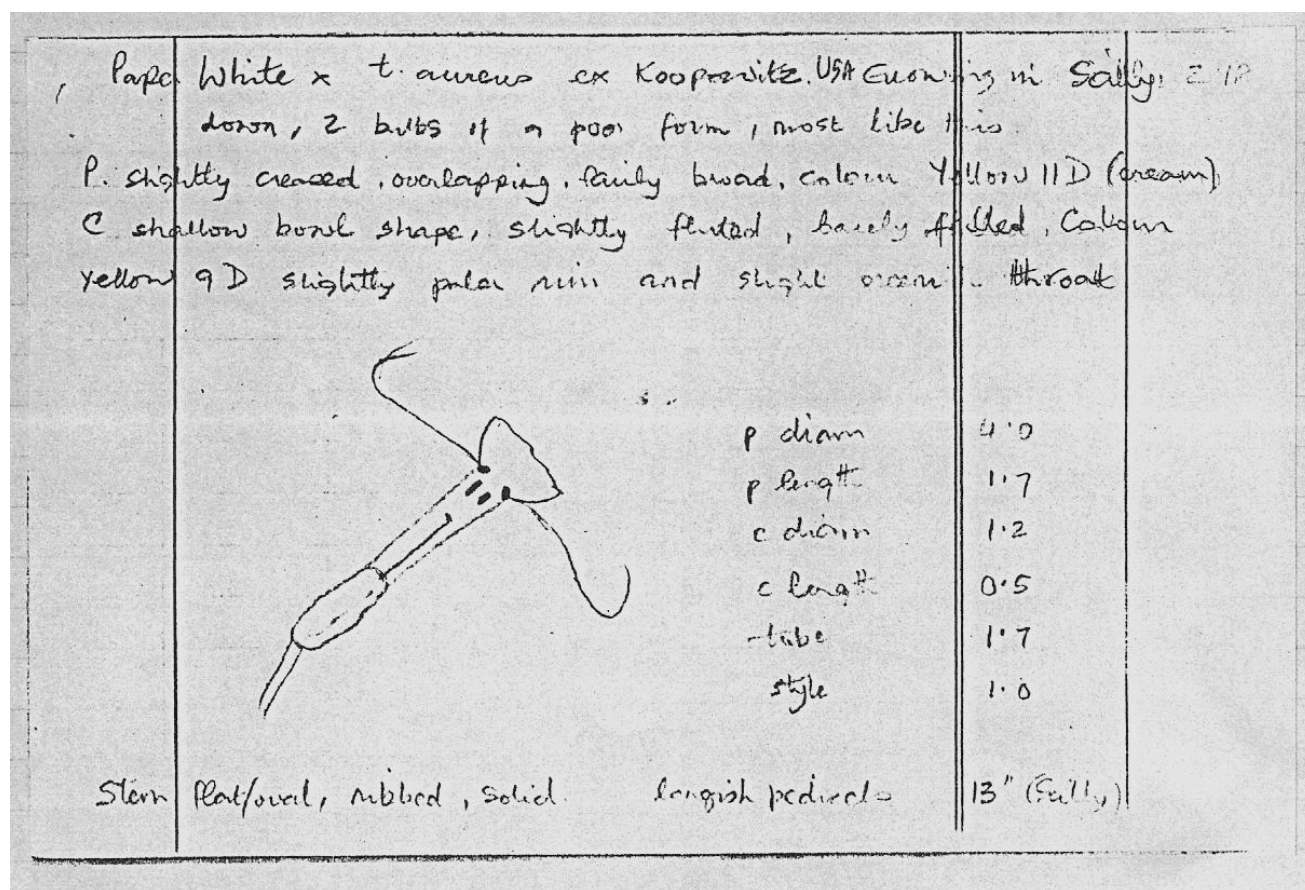 Paper White x t. aureus ex Koopowitz. USA Growing in Scilly.
down, 2 bulbs of a poor form, most like this
P. slightly creased, overlapping, fairly broad, colour Yellow 11D (cream)
C shallow bowl shape, slightly fluted, barely frilled, Colour
Yellow 9D slightly paler rim and slight green in throat
p diam 4.0
p length 1.7
c diam 1.2
c length 0.5
tube 1.7
style 1.0
Stem flat/oval, ribbed, solid. longish pedicels 13" (Scilly)